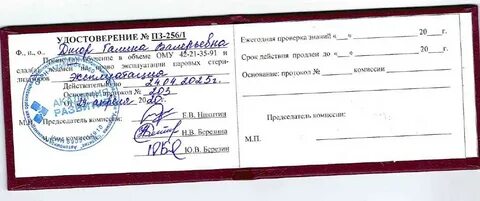 УДОСТОВЕРЕНИЕ № ПЗ-256/1
Ф., и., о. Дттор Галина Валерьевна
Прошел(ла) обучение в объеме ОМУ 42-21-35-91 и
право эксплуатации паровых стери-
лизаторов эксплуатация
Действительно до 24.04.2025г.
Основание: протокол № 203
24 апреля 2020г.
М.П. Председатель комиссии: Е.В. Никитин
Члены комиссии: Н.В. Березина
Ю.В. Березин
АКАДЕМИЯ
РАЗВИТИЯ
Ежегодная проверка знаний « » 20 г.
Срок действия продлен до « » 20 г.
Основание: протокол № комиссии:
Председатель комиссии:
М.П.